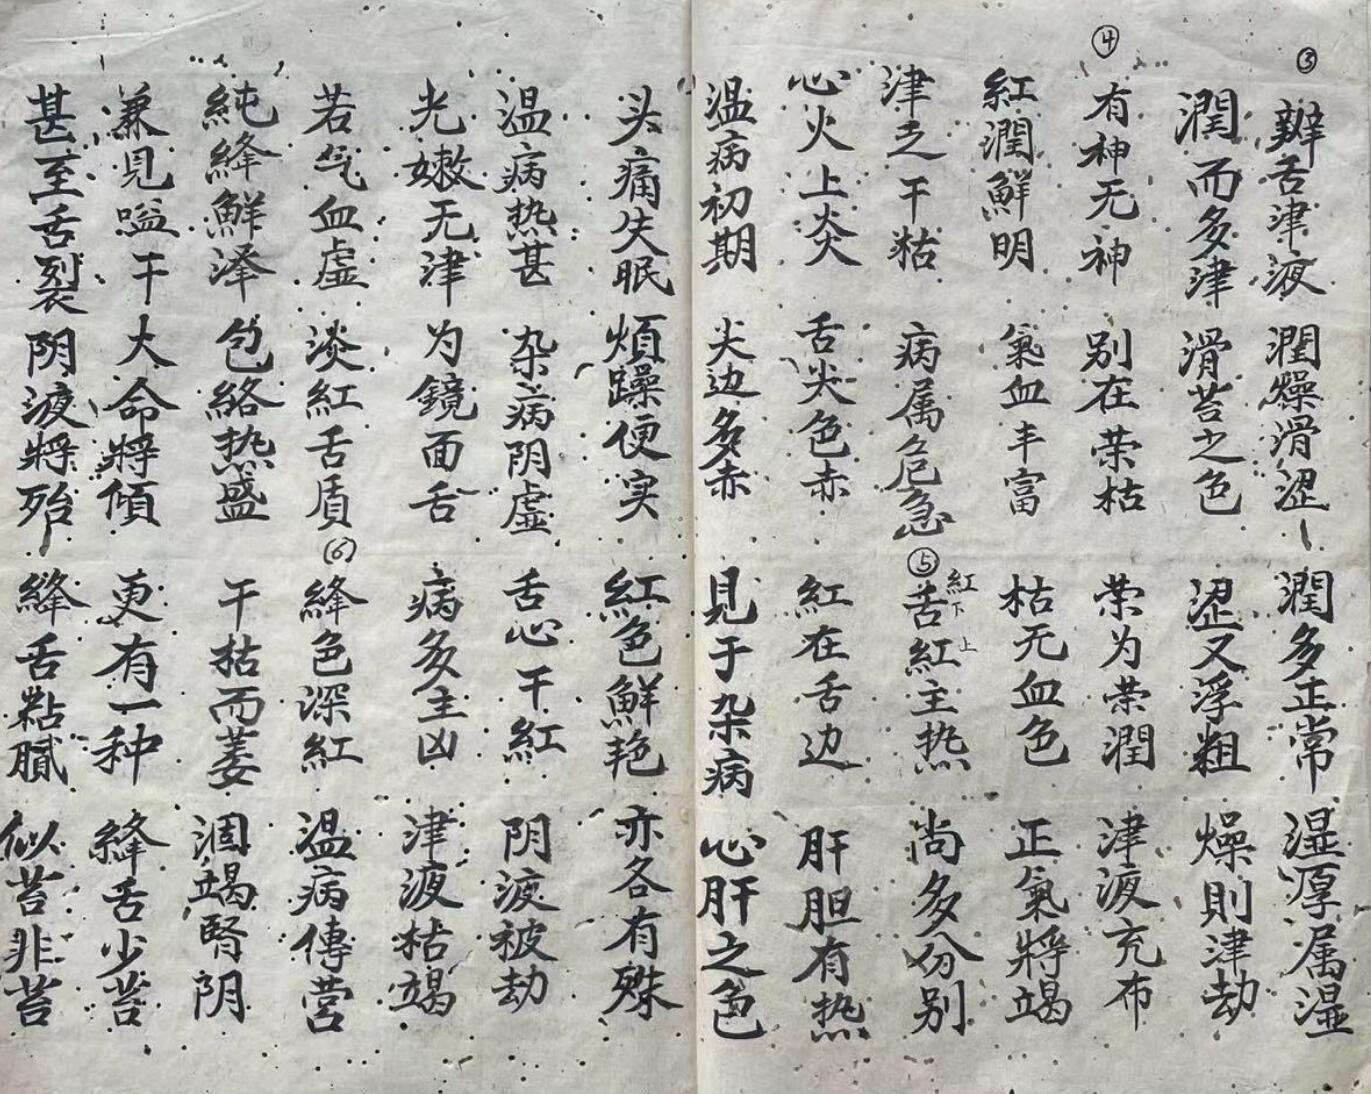 ③
辧舌津液 潤燥滑涩 潤多正常 湿厚属湿
潤而多津 滑苔之色 涩又浮粗 燥則津劫
④
有神无神 别在荣枯 荣为荣潤 津液充布
紅潤鮮明 氣血丰富 枯无血色 正氣將竭
津乏干粘 病属危急 ⑤ 舌紅主热 尚多分别
紅下 上
心火上炎 舌尖色赤 紅在舌边 肝胆有热
温病初期 尖边多赤 見于杂病 心肝之色
头痛失眠 煩躁便实 紅色鮮艳 亦各有殊
温病热甚 杂病阴虚 舌心干紅 阴液被劫
光嫩无津 为鏡面舌 病多主凶 津液枯竭
若气血虚 淡紅舌質 ⑥ 絳色深紅 温病傳营
純絳鮮泽 包絡热盛 干枯而萎 涸竭腎阴
兼見嗌干 大命將傾 更有一种 絳舌少苔
甚至舌裂 阴液將殆 絳舌粘膩 似苔非苔